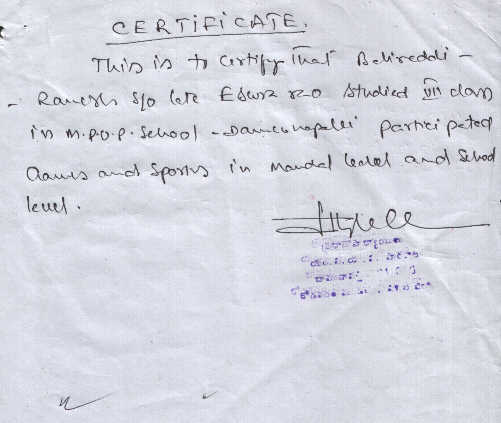 CERTIFICATE.
This is to Certify that Belireddi -
- Ramesh s/o late Eswar rao Studied VII class
in M.P.U.P. School - participated
Games and Sports in Mandal level and School
level.